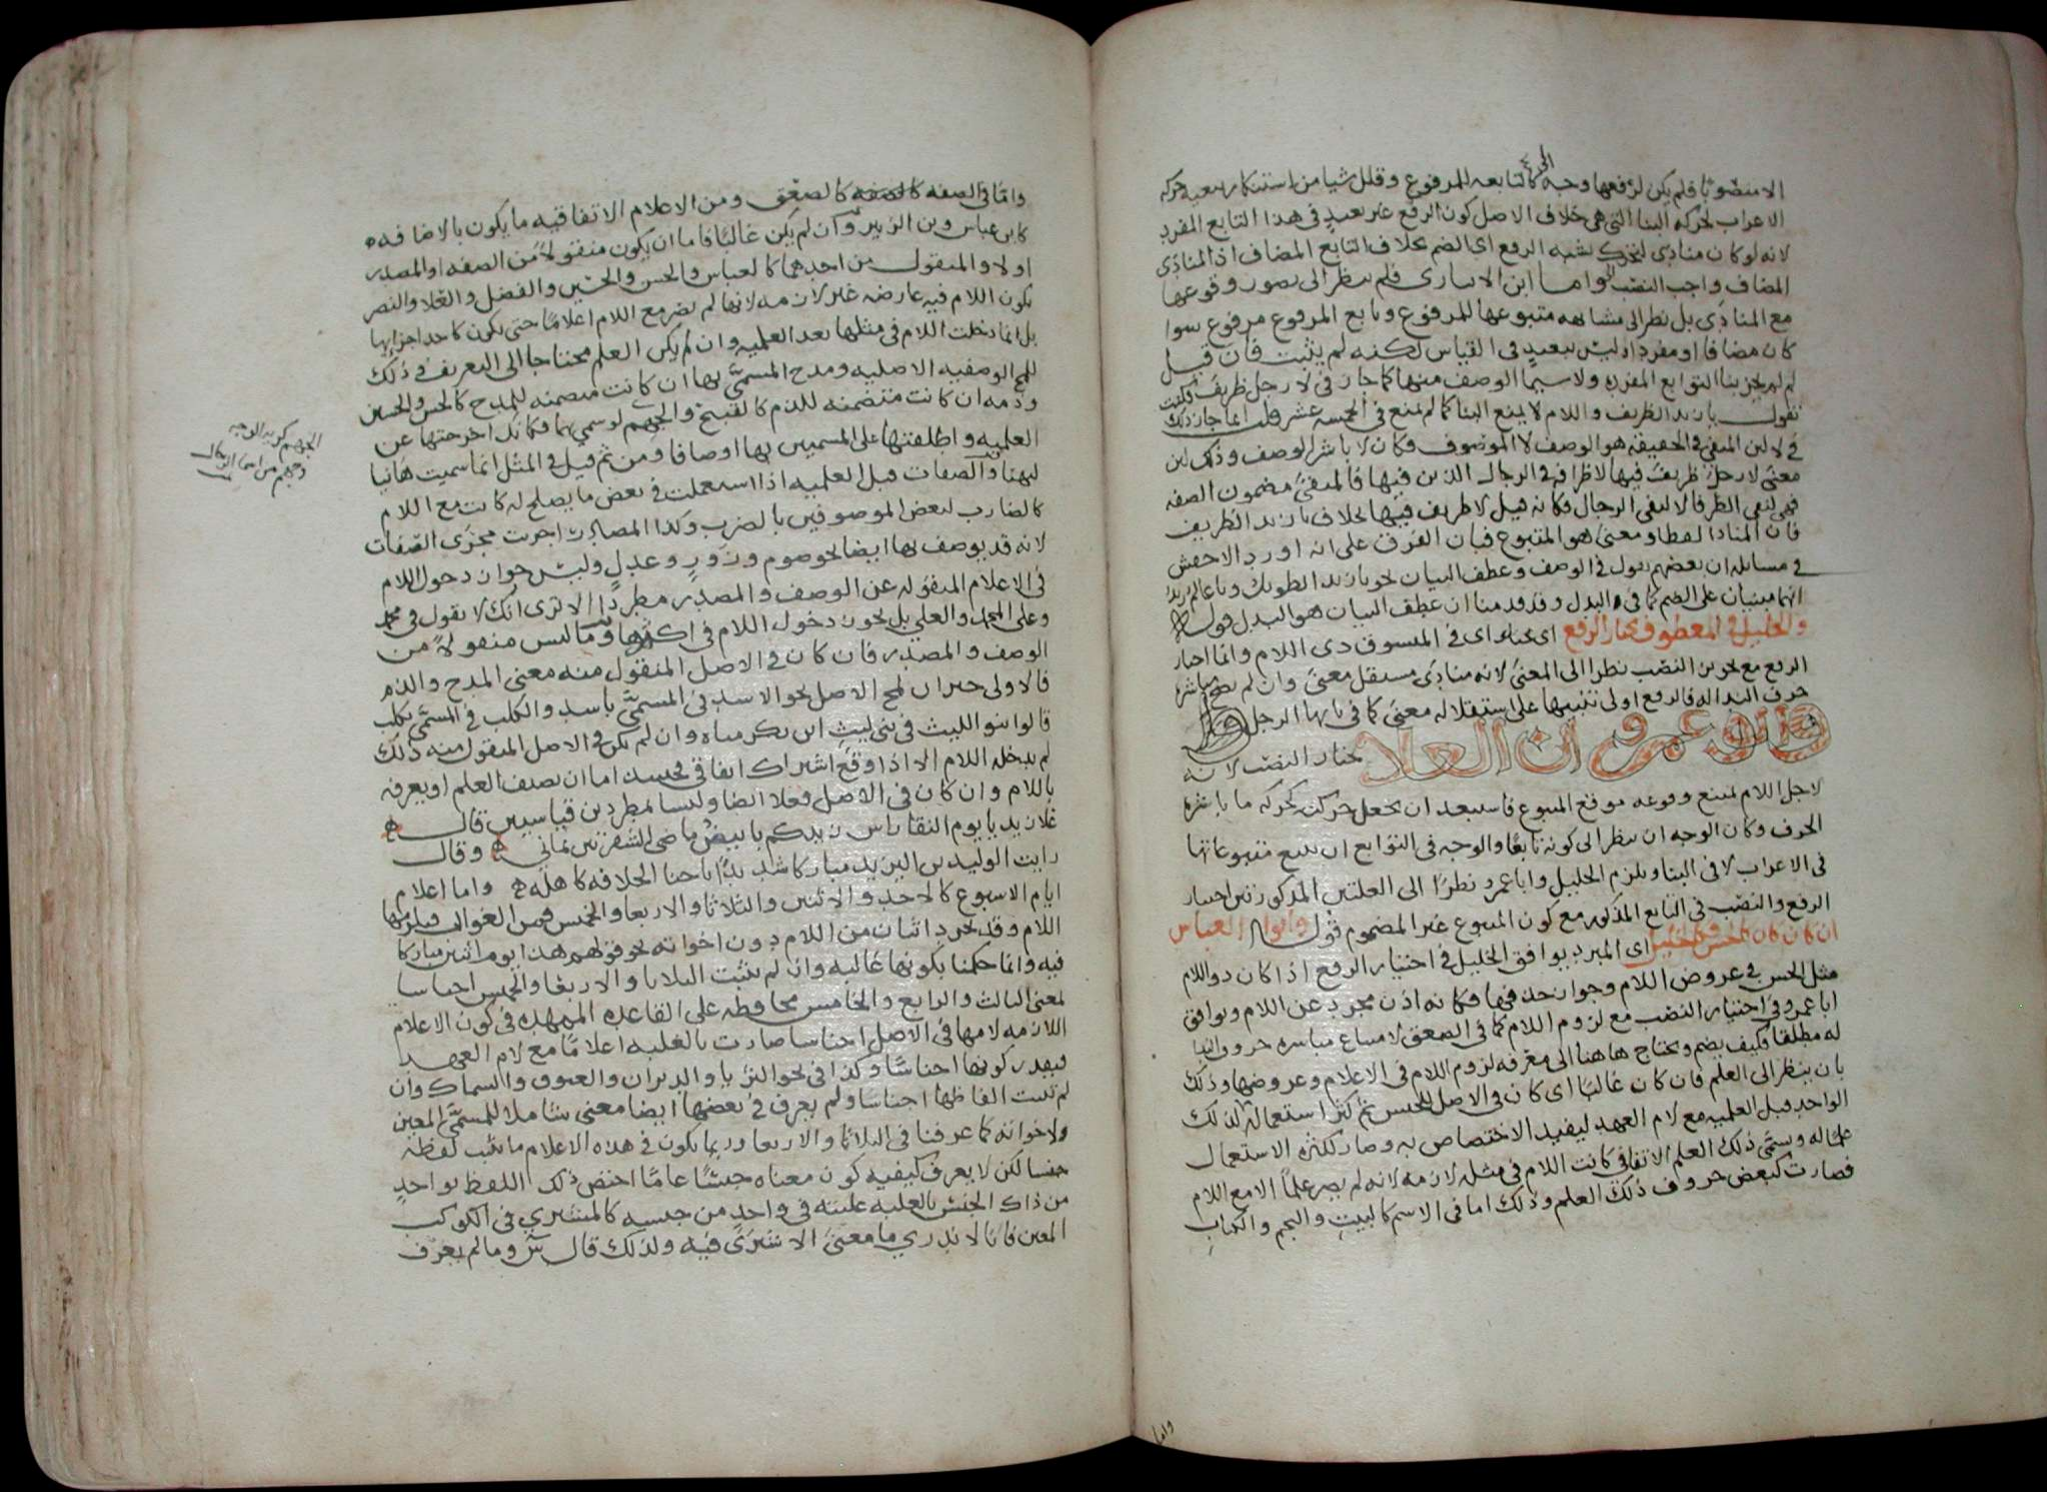 الا منصوبا فلم يكن لرفعها وجه كالتابعه للمرفوع وقلل شيا من استنكار تبعيه حركه
الاعراب لحركه البنا التي هي خلاف الاصل كون الرفع غير بعيد في هذا التابع المفرد
لانه لو كان منادى لتحرك بشبه الرفع اى الضم بخلاف التابع المضاف اذ المنادى
المضاف واجب النصب واما ابن الانبارى فلم ينظر الى تصور وقوعها
مع المنادى بل نظر الى مشابهه متبوعها للمرفوع وتابع المرفوع مرفوع سوا
كان مضافا او مفردا وليس ببعيد في القياس لكنه لم يثبت فان قيل
لم لم يجز بنا التوابع المفرده ولا سيما الوصف منها كما جاز في لا رجل ظريف
تقول يا زيد الظريف واللام لا يمنع البنا كما لم تمنع في الخمسه عشر قلت انما جاز ذلك
في لا لان المنفى في الحقيقه هو الوصف لا الموصوف فكان لا باشر الوصف وذلك لان
معنى لا رجل ظريف فيها لا ظرافه في الرجال الذين فيها فالمنفى مضمون الصفه
فهي لنفى الظرافه لا لنفى الرجال فكانه قيل لا ظريف فيها بخلاف يا زيد الظريف
فان المنادا لفظا ومعنى هو المتبوع فبان الفرق على انه اورد الاخفش
في مسائله ان بعضهم يقول في الوصف وعطف البيان نحو يا زيد الطويل ويا عالم زيد
انهما مبنيان على الضم كما في البدل وقد قدمنا ان عطف البيان هو البدل قوله
والخليل في المعطوف يختار الرفع اى يختار اى في المنسوق ذى اللام وانما اختار
الرفع مع تجويز النصب نظرا الى المعنى لانه منادى مستقل معنى وان لم يصح مباشره
حرف الندا له فالرفع اولى تنبيها على استقلاله معنى كما في يا ايها الرجل قوله
وابو عمرو بن العلا يختار النصب لانه
لاجل اللام يمتنع وقوعه موقع المتبوع فاستبعد ان يجعل حركته كحركه ما باشره
الحرف وكان الوجه ان ينظر الى كونه تابعا والوجه في التوابع ان تتبع متبوعاتها
في الاعراب لا في البنا ويلزم الخليل وابا عمرو نظرا الى العلتين المذكورتين اختيار
الرفع والنصب في التابع المذكور مع كون المتبوع غير المضموم قوله وابو العباس
ان كان كالحسن فكالخليل اى المبرد يوافق الخليل في اختيار الرفع اذا كان ذو اللام
مثل الحسن في عروض اللام وجواز حذفها فكانه اذن مجرد عن اللام ويوافق
ابا عمرو في اختيار النصب مع لزوم اللام كما في الصعق لامتناع مباشره حروف الندا
له مطلقا فكيف يضم ويحتاج هاهنا الى معرفه لزوم اللام في الاعلام وعروضها وذلك
بان ينظر الى العلم فان كان غالبا اى كان في الاصل للجنس ثم كثر استعماله لذلك
الواحد قبل العلميه مع لام العهد ليفيد الاختصاص به وصار لكثره الاستعمال
علما له ويسمى ذلك العلم الاتفاقى كانت اللام في مثله لازمه لانه لم يصر علما الا مع اللام
فصارت كبعض حروف ذلك العلم وذلك اما في الاسم كالبيت والنجم والكتاب
واما
واما في الصفه كالصعق ومن الاعلام الاتفاقيه ما يكون بالاضافه
كابن عباس وبن الزبير وان لم يكن غالبا فاما ان يكون منقولا من الصفه او المصدر
اولا والمنقول من احدهما كالعباس والحسن والحسين والفضل والعلا والنصر
تكون اللام فيه عارضه غير لازمه لانها لم تصر مع اللام اعلاما حتى تكون كاحد اجزايها
بل انما دخلت اللام في مثلها بعد العلميه وان لم يكن العلم محتاجا الى التعريف في ذلك
للمح الوصفيه الاصليه ومدح المسمى بها ان كانت متضمنه للمدح كالحسن والحسين
وذمه ان كانت متضمنه للذم كالقبيح والجهم لو سمي بهما فكانك اخرجتها عن
العلميه واطلقتها على المسميين بها اوصافا ومن ثم قيل في المثل انما سميت هانيا
لتهنا والصفات قبل العلميه اذا استعملت في بعض ما يصلح له كانت مع اللام
كالضارب لبعض الموصوفين بالضرب وكذا المصادر اجريت مجرى الصفات
لانه قد يوصف بها ايضا نحو صوم وزور وعدل وليس جواز دخول اللام
في الاعلام المنقوله عن الوصف والمصدر مطردا الا ترى انك لا تقول في محمد
وعلى المحمد والعلي بل يجوز دخول اللام في اكثرها وما ليس منقولا من
الوصف والمصدر فان كان في الاصل المنقول منه معنى المدح والذم
فالاولى جواز لمح الاصل نحو الاسد في المسمى باسد والكلب في المسمى بكلب
قالوا بنو الليث في بني ليث ابن بكر مناه وان لم يكن في الاصل المنقول منه ذلك
لم يدخله اللام الا اذا وقع اشتراك اتفاقى فحينئذ اما ان تضيف العلم او تعرفه
باللام وان كان في الاصل فعلا ايضا وليسا مطردين قياسيين قال
علا زيدنا يوم النقا راس زيدكم بابيض ماضى الشفرتين يماني وقال
رايت الوليد بن اليزيد مباركا شديدا باحنا الخلافه كاهله واما اعلام
ايام الاسبوع كالاحد والاثنين والثلاثا والاربعا والخميس فمن الغوالب فيلزمها
اللام وقد يجرد اثنان من اللام دون اخواته نحو قولهم هذا يوم اثنين مباركا
فيه وانما حكمنا بكونها غالبه وان لم تثبت الثلاثا والاربعا والخميس اجناسا
لمعنى الثالث والرابع والخامس محافظه على القاعده الممهده في كون الاعلام
اللازمه لامها في الاصل اجناسا صارت بالغلبه اعلاما مع لام العهد
فيقدر كونها اجناسا وكذا في نحو الثريا والدبران والعيوق والسماك وان
لم تثبت الفاظها اجناسا ولم يعرف في بعضها ايضا معنى شاملا للمسمى المعين
ولاخواته كما عرفنا في الثلاثا والاربعا وربما يكون في هذه الاعلام ما ثبت لفظه
جنسا لكن لا يعرف كيفيه كون معناه جنسا عاما اختص ذلك اللفظ بواحد
من ذاك الجنس بالغلبه عليته في واحد من جنسه كالمشترى في الكوكب
المعين فانا لا ندري ما معنى الاشترى فيه ولذلك قال س وما لم يعرف
الجهم كريه الوجه
وجهم من اسما الرجال